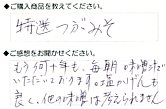 ◆ご購入商品を教えてください。
特選つがみそ
◆ご感想をお聞かせください。
もう何十年も、毎朝味噌汁で
いただいております。塩かげんも
良く、他の味噌は考えられません